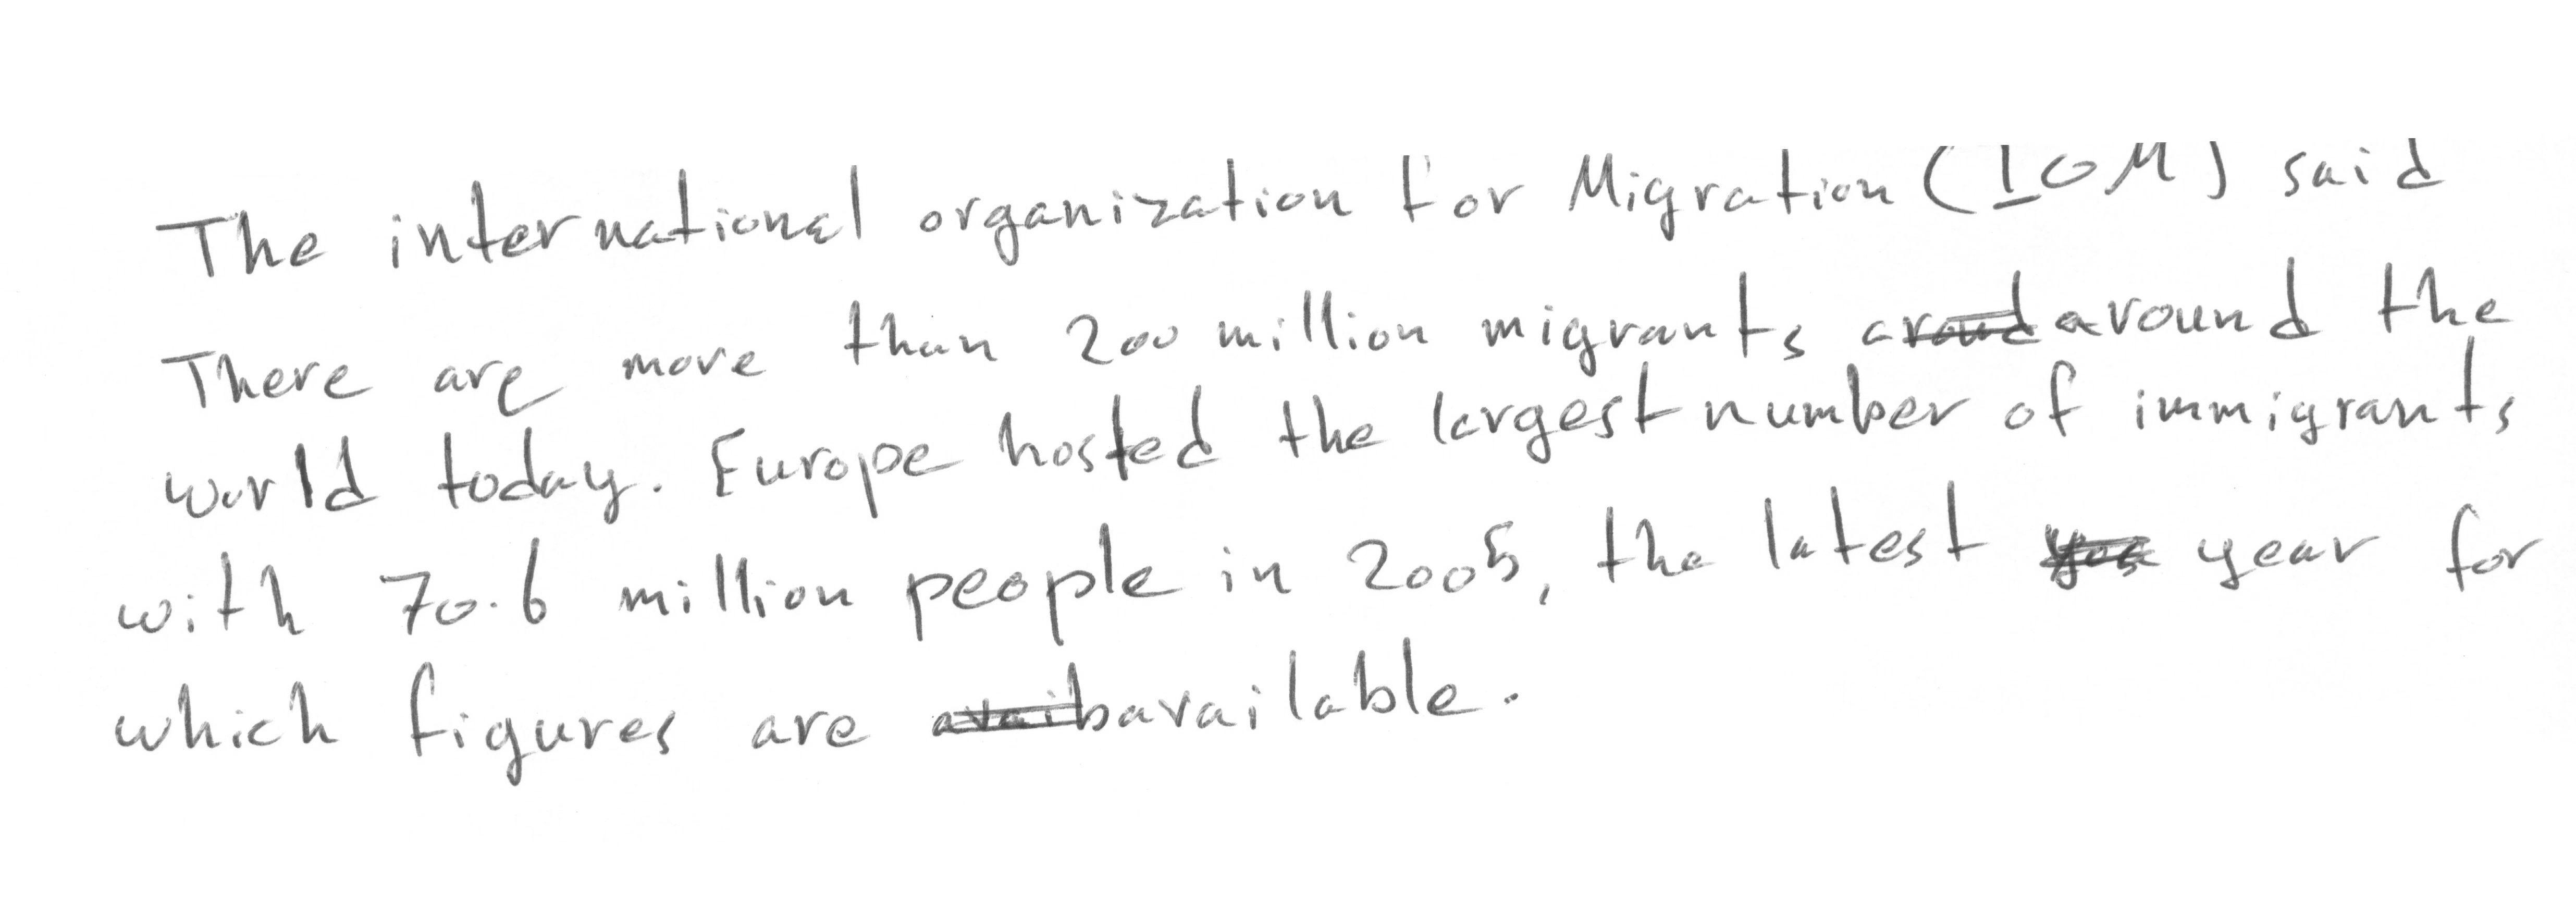 The international organization for Migration (IOM) said
There are more than 200 million migrants around the
world today. Europe hosted the largest number of immigrants
with 70.6 million people in 2005, the latest year for
which figures are available.